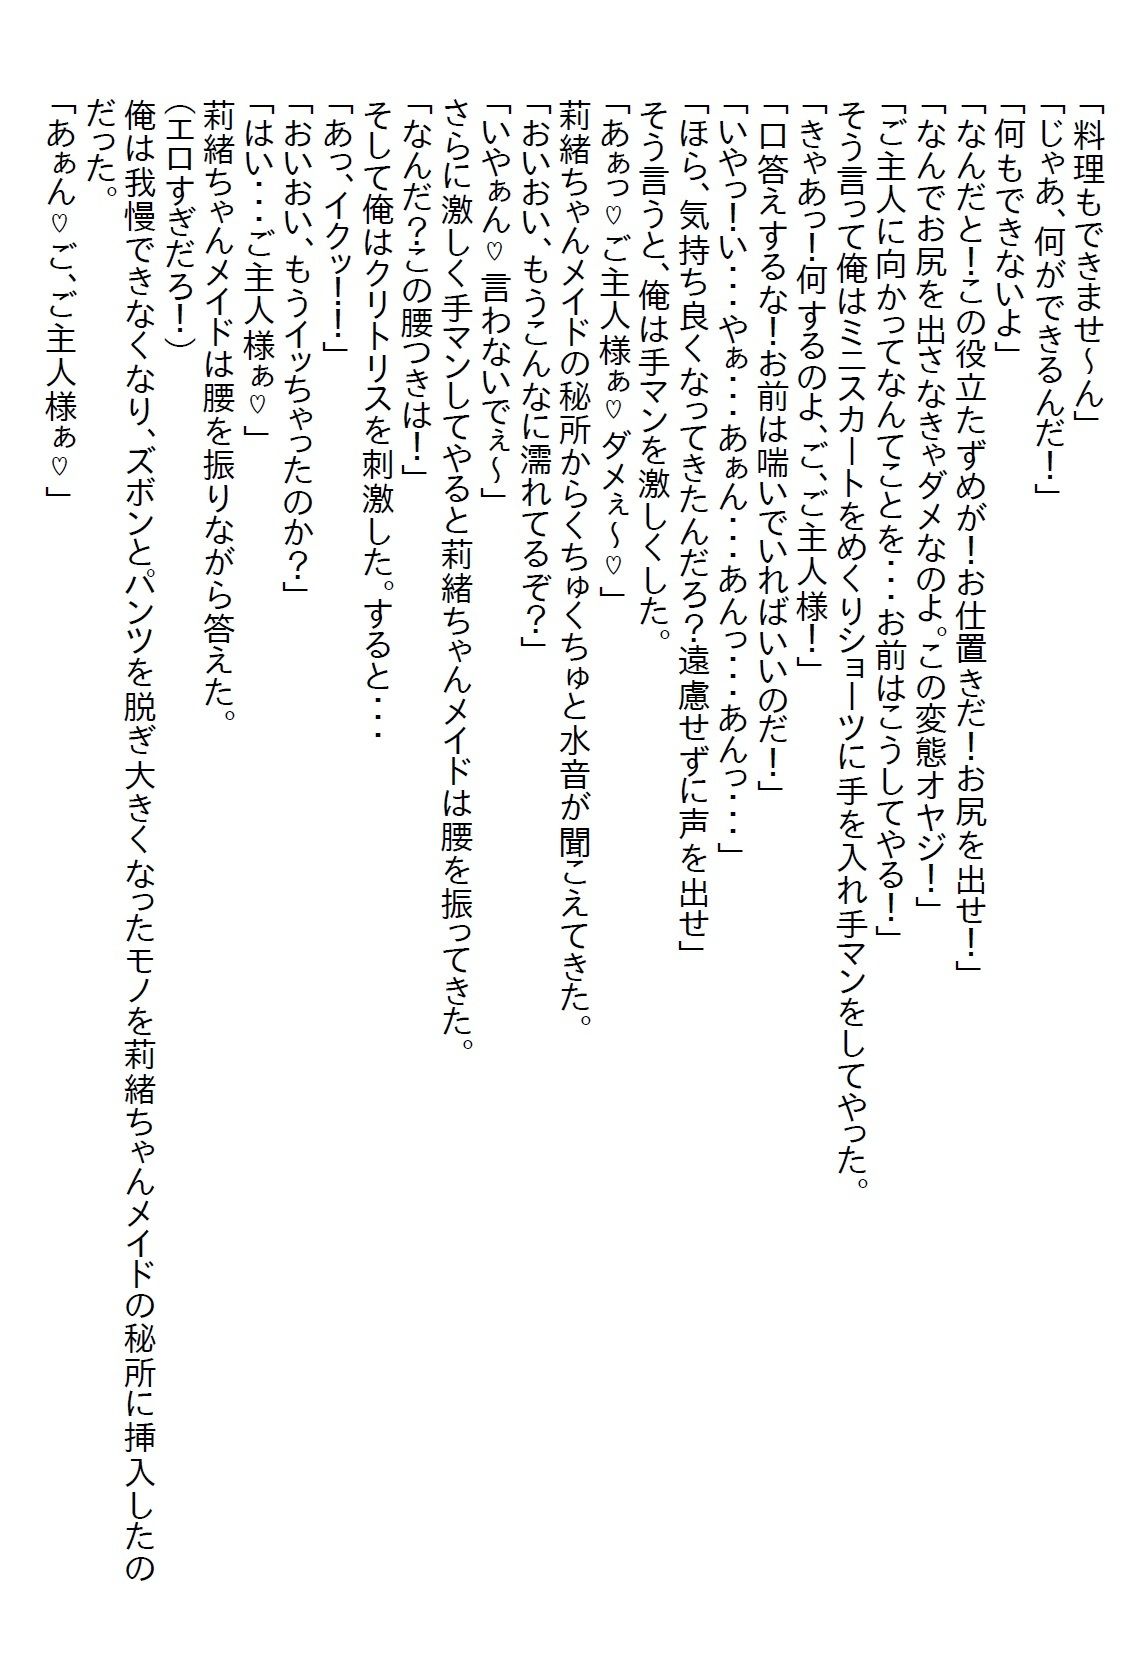 「料理もできませ～ん」
「じゃあ、何ができるんだ！」
「何もできないよ」
「なんだと！この役立たずめが！お仕置きだ！お尻を出せ！」
「なんでお尻を出さなきゃダメなのよ。この変態オヤジ！」
「ご主人に向かってなんてことを・・・お前はこうしてやる！」
そう言って俺はミニスカートをめくりショーツに手を入れ手マンをしてやった。
「きゃあっ！何するのよ、ご、ご主人様！」
「口答えするな！お前は喘いでいればいいのだ！」
「いやっ！い・・・やぁ・・・あぁん・・・あんっ・・・あんっ・・・」
「ほら、気持ち良くなってきたんだろ？遠慮せずに声を出せ」
そう言うと、俺は手マンを激しくした。
「あぁっ♡ご主人様ぁ♡ダメぇ～♡」
莉緒ちゃんメイドの秘所からくちゅくちゅと水音が聞こえてきた。
「おいおい、もうこんなに濡れてるぞ？」
「いやぁん♡言わないでぇ～」
さらに激しく手マンしてやると莉緒ちゃんメイドは腰を振ってきた。
「なんだ？この腰つきは！」
そして俺はクリトリスを刺激した。すると・・・
「あっ、イクッ！！」
「おいおい、もうイッちゃったのか？」
「はい・・・ご主人様ぁ♡」
莉緒ちゃんメイドは腰を振りながら答えた。
（エロすぎだろ！）
俺は我慢できなくなり、ズボンとパンツを脱ぎ大きくなったモノを莉緒ちゃんメイドの秘所に挿入したの
だった。
「あぁん♡ご、ご主人様ぁ♡」